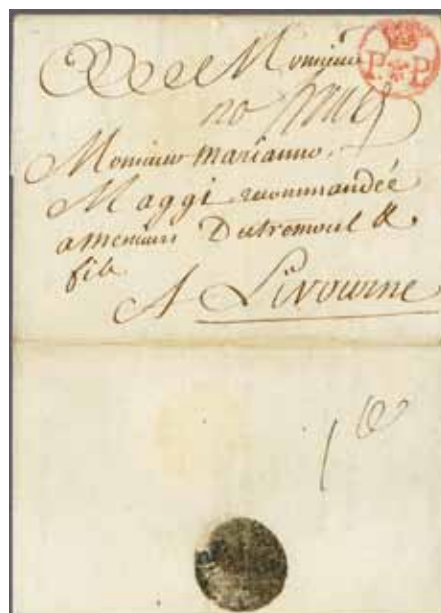 A Monsieur
P. P.
Monsieur marianno
Maggi recommandée
a messieurs Dutremoul &
fils
A Livourne